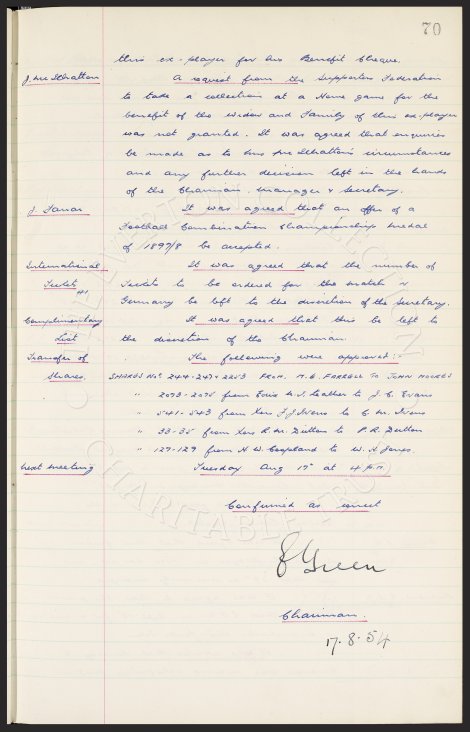 70
this ex-player for his Benefit Cheque.
J. McIlhatton A request from the Supporters Federation
to take a collection at a Home game for the
benefit of the widow and family of this ex-player
was not granted. It was agreed that enquiries
be made as to Mrs McIlhatton's circumstances
and any further decision left in the hands
of the Chairman, Manager & Secretary.
J. It was agreed that an offer of a
Football Combination Championship medal
of 1897/8 be accepted.
International It was agreed that the number of
Ticket Tickets to be ordered for the match v
Germany be left to the discretion of the Secretary.
Complimentary It was agreed that this be left to
List the discretion of the Chairman.
Transfer of The following were approved:-
Shares. SHARES Nos 244-247 & 2253 FROM. M.E. FARRELL TO JOHN MOORES
" 2073-2075 from Exors W.J. Leather to J.C. Evans
" 541-543 from Exors J.J. Ivens to C.M. Ivens
" 33-35 from Exors R.M. Dutton to P.R. Dutton
" 127-129 from H.W. Coopland to W.H. Jones
Next Meeting Tuesday Aug 17th at 4 p.m.
Confirmed as correct
Green
Chairman.
17.8.54
CHARITABLE TRUST